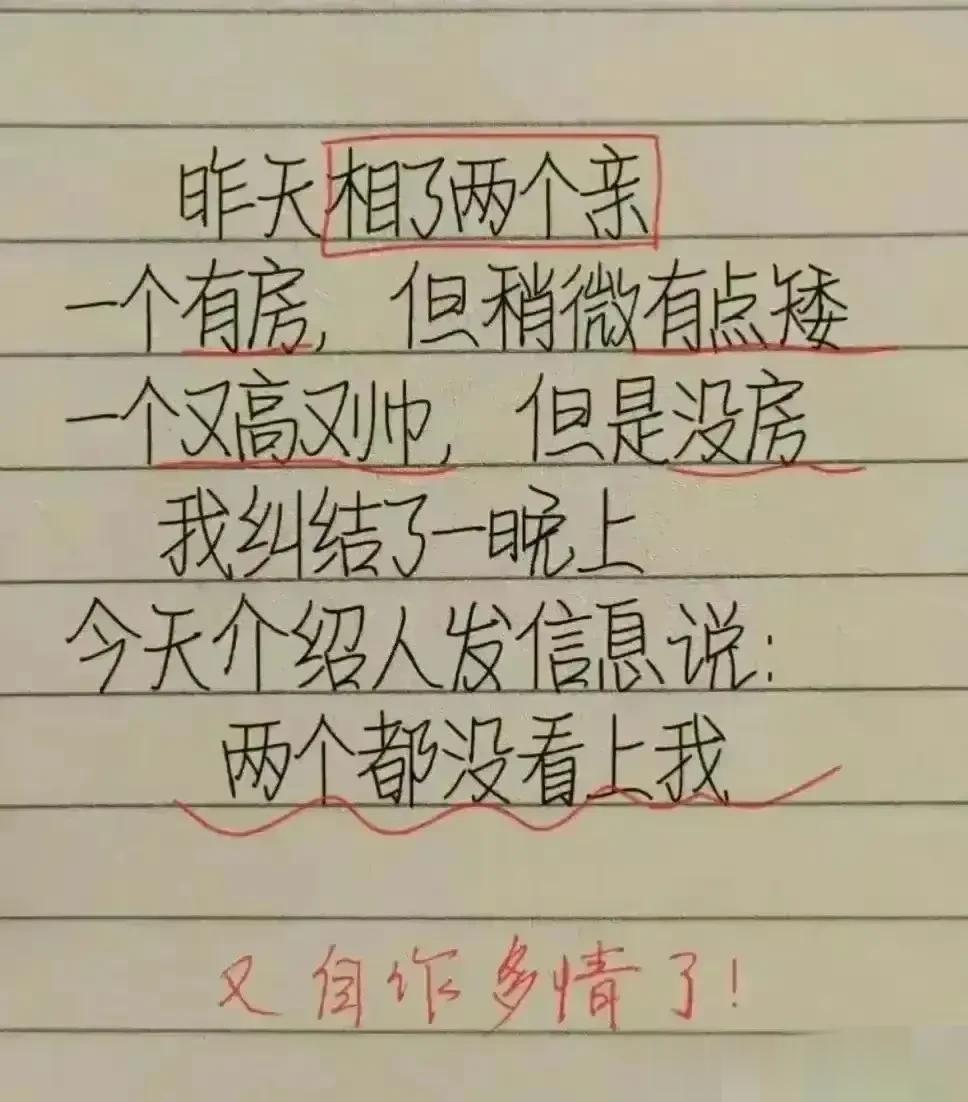 昨天相了两个亲
一个有房,但稍微有点矮
一个又高又帅,但是没房
我纠结了一晚上
今天介绍人发信息说:
两个都没看上我
又自作多情了!